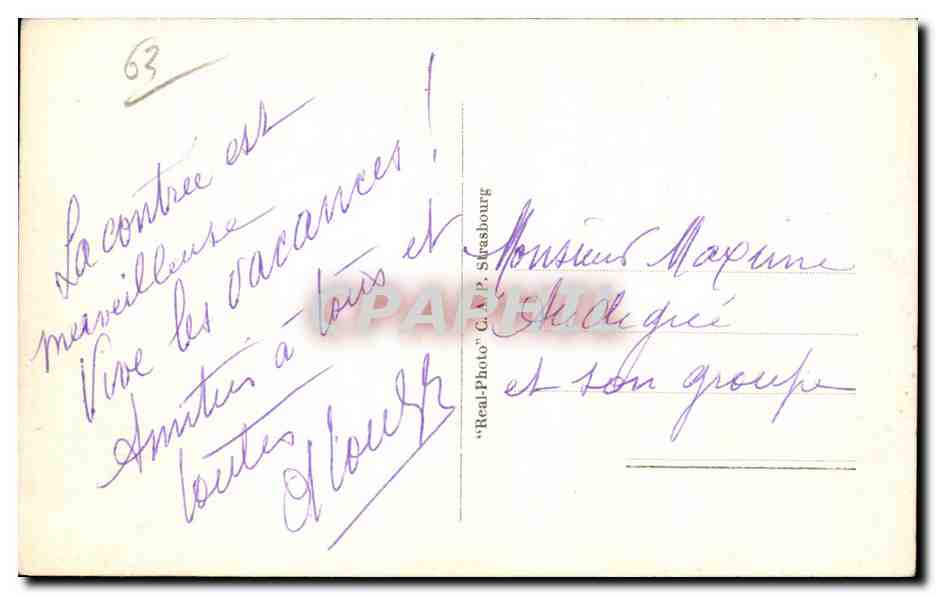 63
La contrée est
merveilleuse
Vive les vacances !
Amitiés à tous et
toutes
"Real-Photo" C. A. P. Strasbourg
Monsieur Maxime
Audigué
et son groupe
CPAPHIL